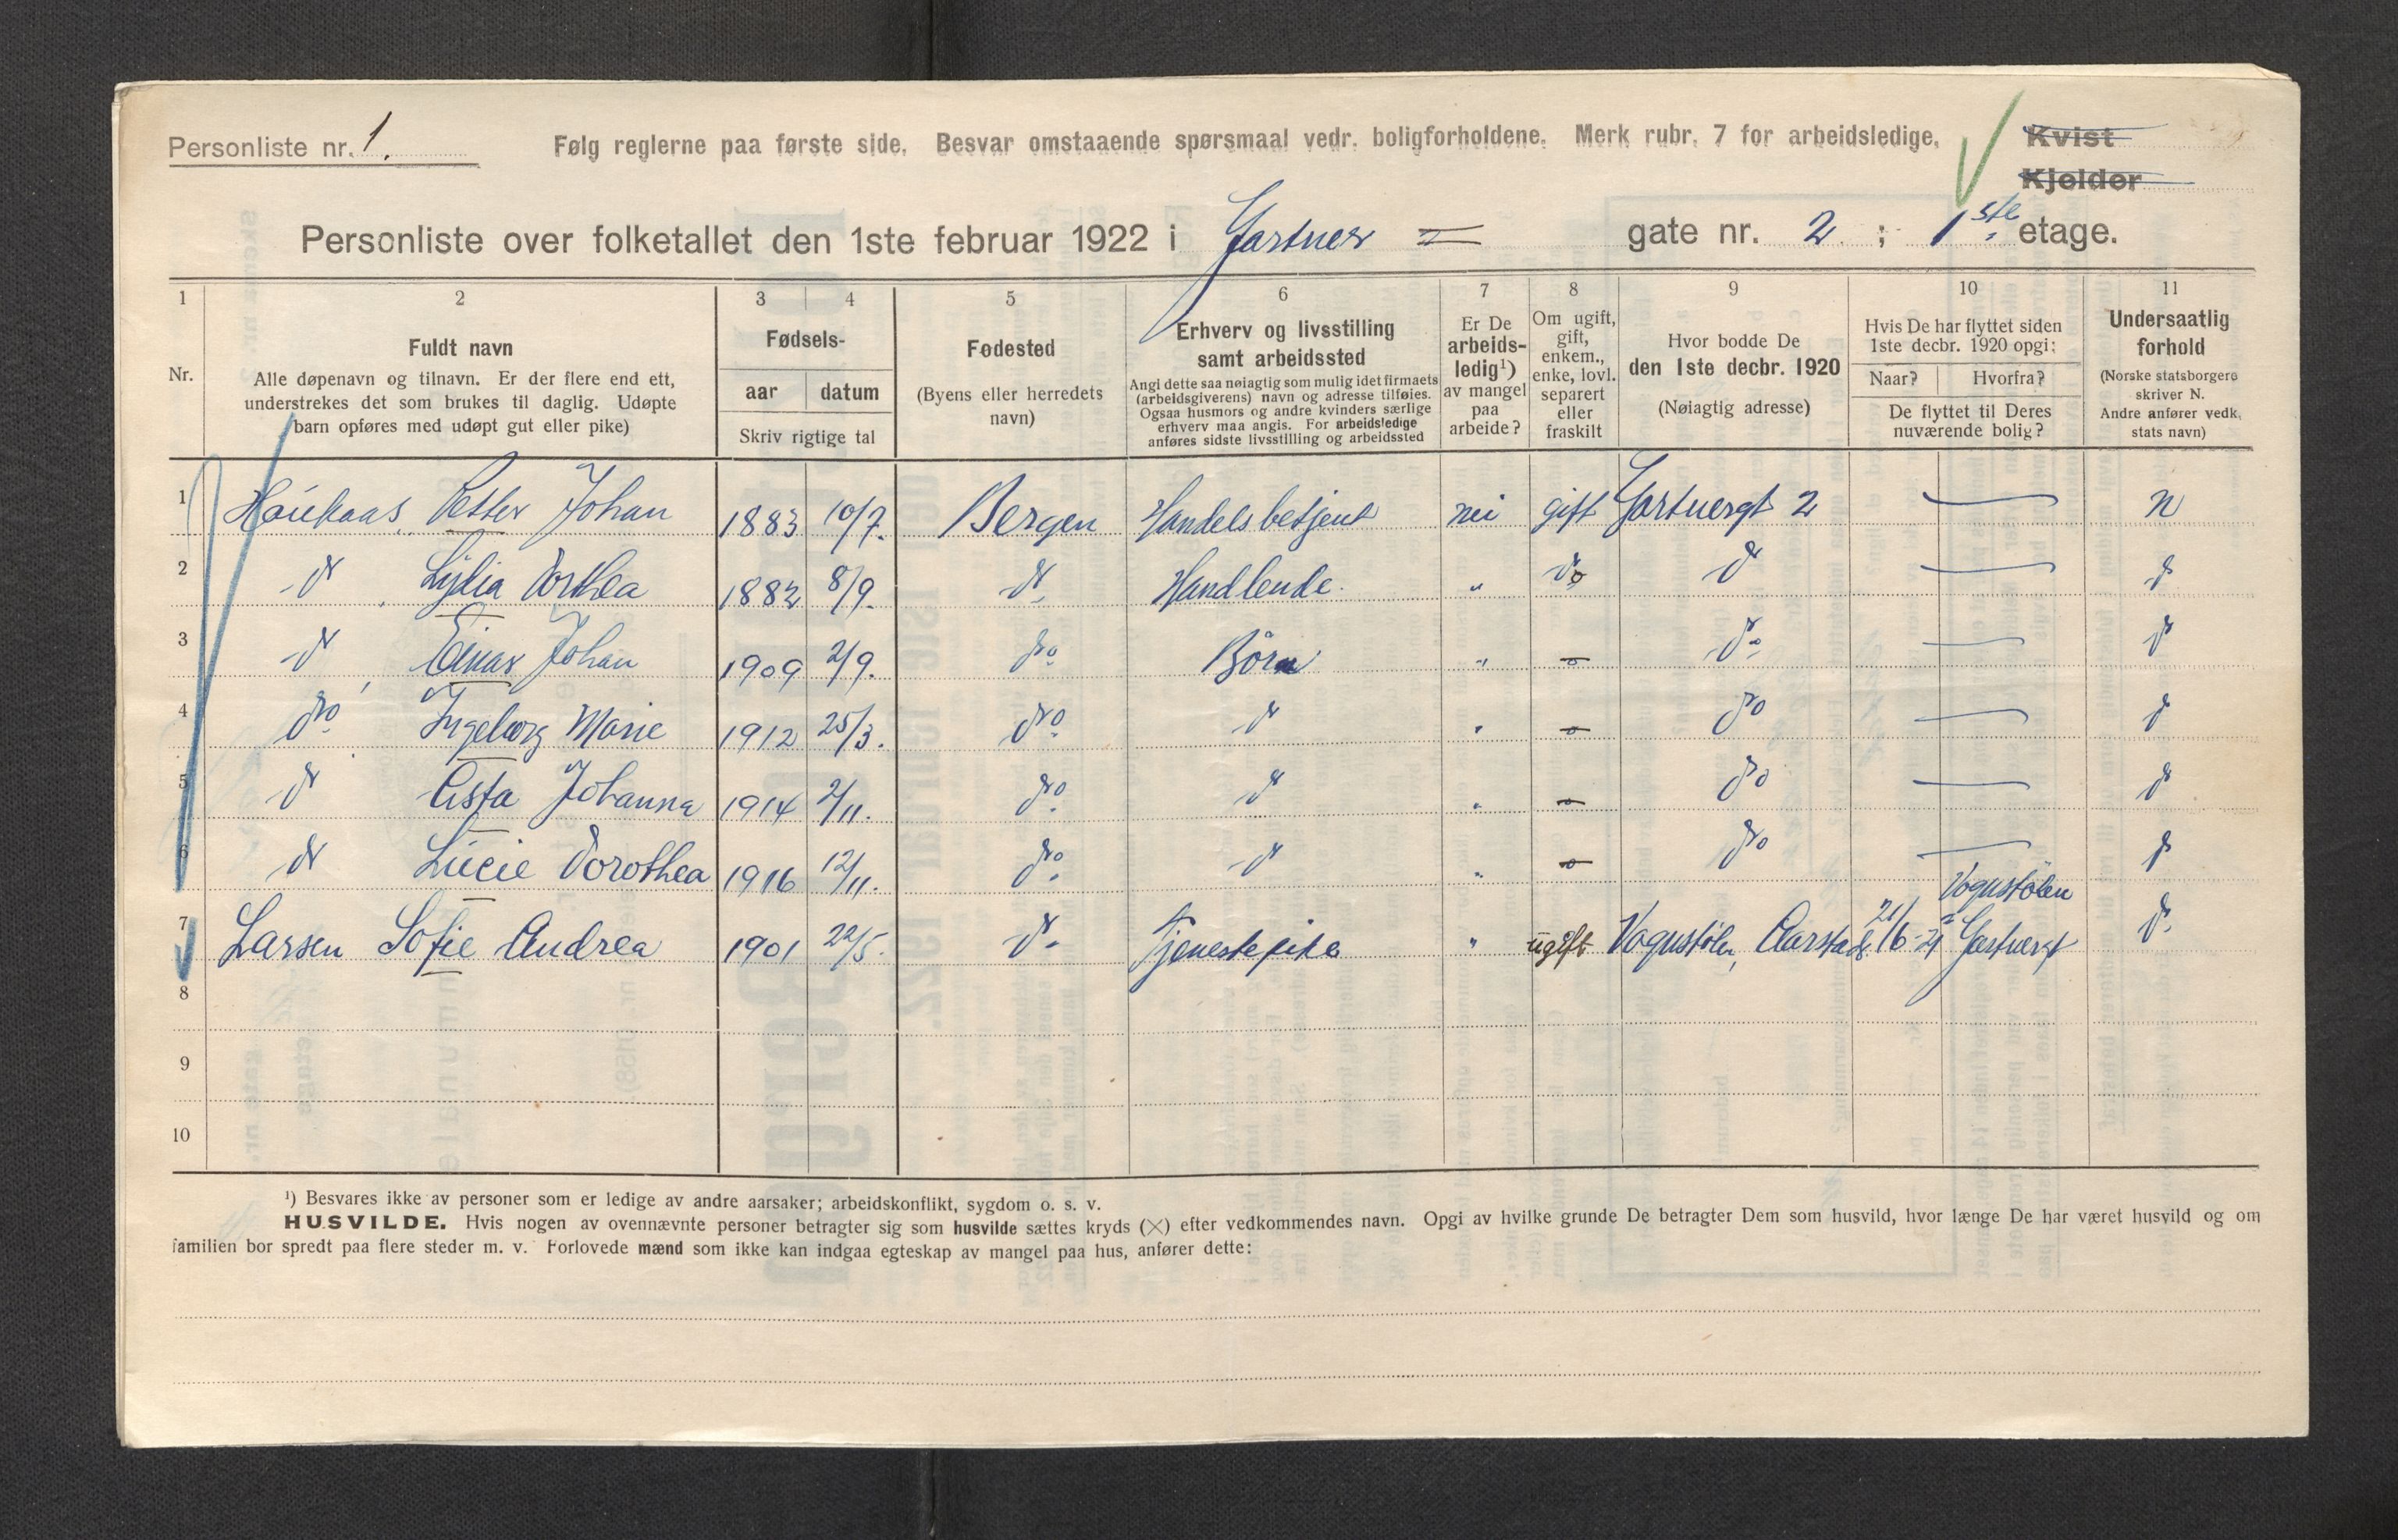 Personliste nr. 1. Følg reglerne paa første side. Besvar omstaaende spørsmaal vedr. boligforholdene. Merk rubr. 7 for arbeidsledige. Kvist
Kjelder
Personliste over folketallet den 1ste februar 1922 i Gartner = gate nr. 2 ; 1ste etage.
1 2 3 4 5 6 7 8 9 10 11
Nr.
Fuldt navn
Alle døpenavn og tilnavn. Er der flere end ett,
understrekes det som brukes til daglig. Udøpte
barn opføres med udøpt gut eller pike)
Fødsels-
aar datum
Skriv rigtige tal
Fødested
(Byens eller herredets
navn)
Erhverv og livsstilling
samt arbeidssted
Angi dette saa nøiagtig som mulig idet firmaets
(arbeidsgiverens) navn og adresse tilføies.
Ogsaa husmors og andre kvinders særlige
erhverv maa angis. For arbeidsledige
anføres sidste livsstilling og arbeidssted
Er De
arbeids-
ledig¹)
av mangel
paa
arbeide?
Om ugift,
gift,
enkem.,
enke, lovl.
separert
eller
fraskilt
Hvor bodde De
den 1ste decbr. 1920
(Nøiagtig adresse)
Hvis De har flyttet siden
1ste decbr. 1920 opgi:
Naar? Hvorfra?
De flyttet til Deres
nuværende bolig?
Undersaatlig
forhold
(Norske statsborgere
skriver N.
Andre anfører vedk.
stats navn)
1 Haukaas, Petter Johan 1883 10/7. Bergen Handelsbetjent nei gift Gartnergt 2 — n
2 do Lydia Dorthea 1882 8/9. do Handlende. " do do — do
3 do Einar Johan 1909 2/9. do Börn " - do — do
4 do Ingeborg Marie 1912 25/3. do do " - do — do
5 do Asta Johanna 1914 2/11. do do " - do — do
6 do Lucie Dorothea 1916 12/11. do do " - do — do
Vognstölen
7 Larsen Sofie Andrea 1901 22/5. do Tjenestepike " ugift Vognstölen, Aarstad. 21/6-21 2 Gartnergt do
8
9
10
¹) Besvares ikke av personer som er ledige av andre aarsaker; arbeidskonflikt, sygdom o. s. v.
HUSVILDE. Hvis nogen av ovennævnte personer betragter sig som husvilde sættes kryds (×) efter vedkommendes navn. Opgi av hvilke grunde De betragter Dem som husvild, hvor længe De har været husvild og om
familien bor spredt paa flere steder m. v. Forlovede mænd som ikke kan indgaa egteskap av mangel paa hus, anfører dette: